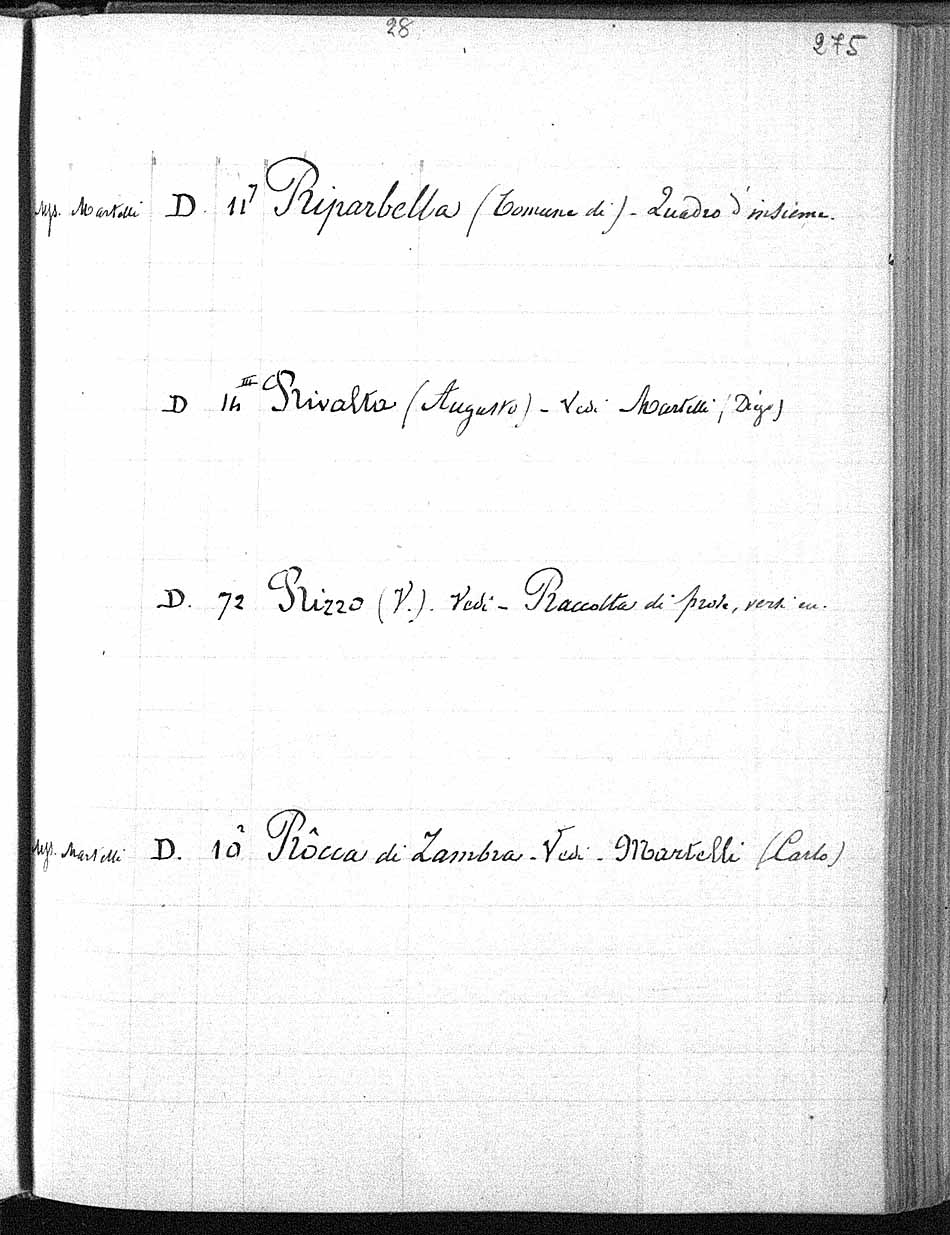 28
275
Mss. Martelli D. 11⁷ Riparbella (Comune di) - Quadro d'insieme.
D 14ᴵᴵᴵ Rivalta (Augusto) - Vedi Martelli (Diego)
D. 72 Rizzo (V.). Vedi - Raccolta di prose, versi ecc.
Mss. Martelli D. 10² Rôcca di Zambra - Vedi - Martelli (Carlo)